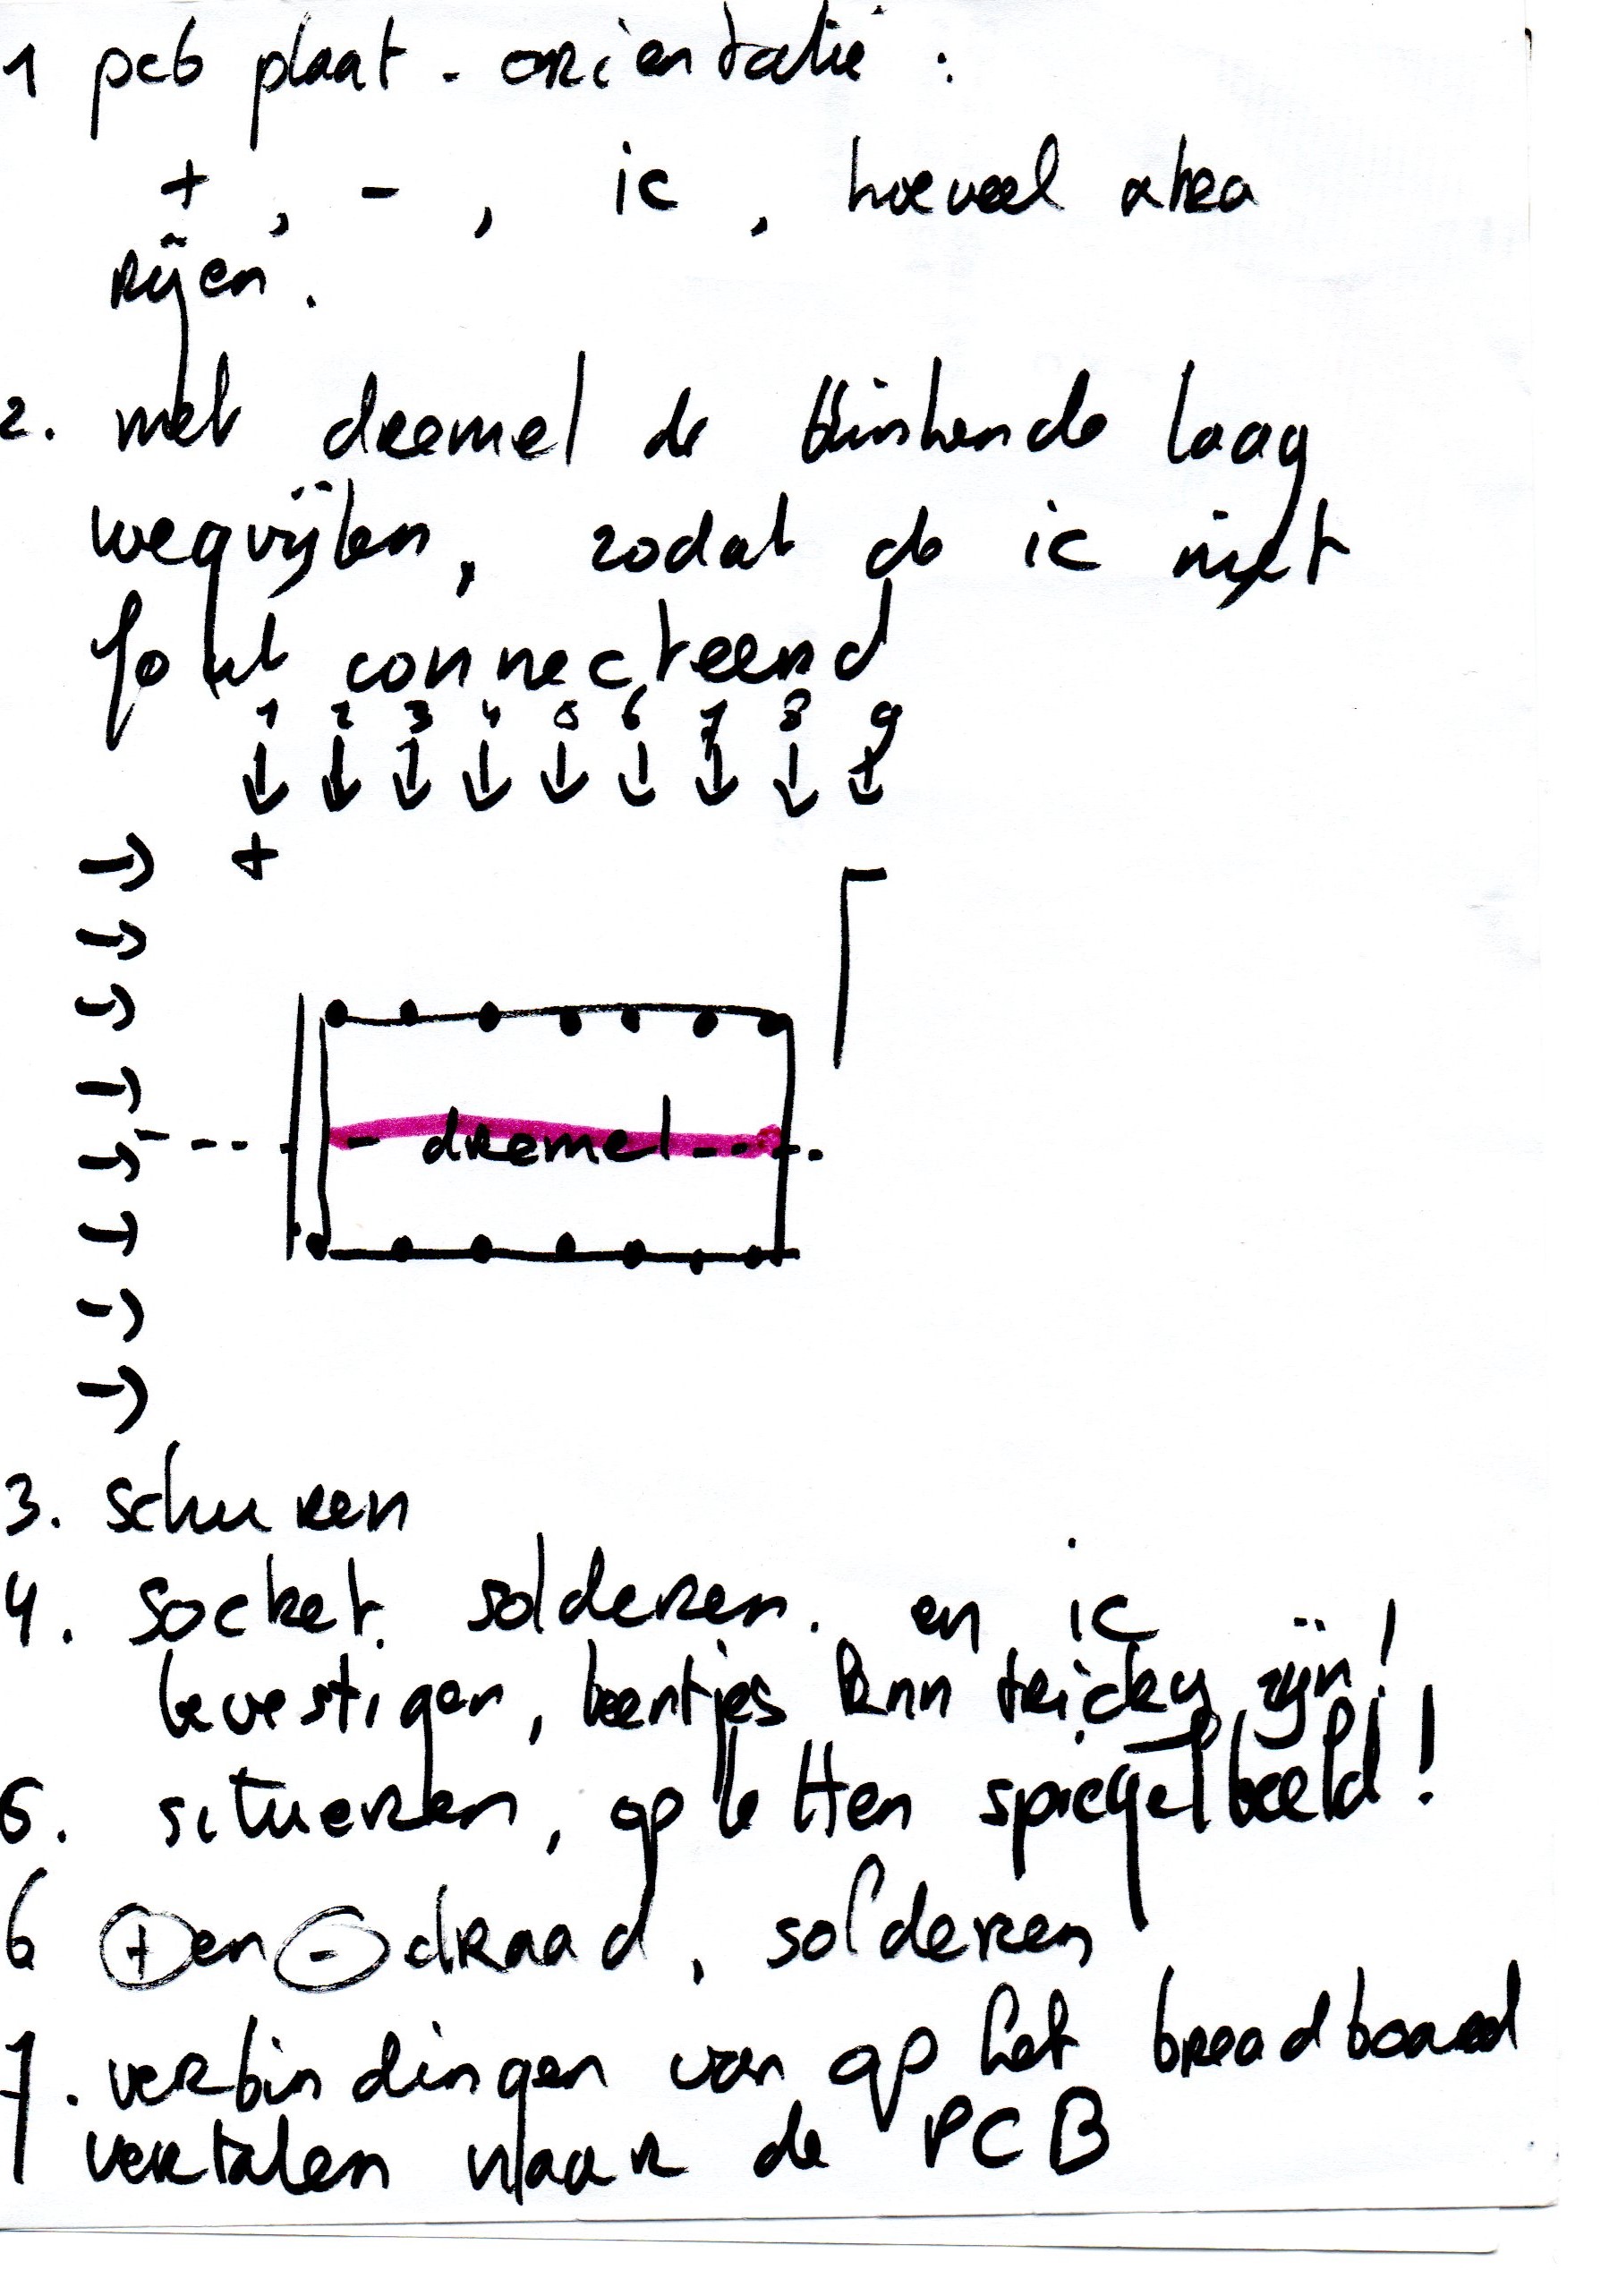 1 pcb plaat - orientatie :
+ , - , ic , hoeveel extra
rijen .
2. met dremel de blinkende laag
wegvijlen, zodat de ic niet
fout connecteerd
1 2 3 4 5 6 7 8 9
+
- dremel - - -
3. schuren
4. socket solderen. en ic
bevestigen, beentjes knn tricky zijn!
5. situeren, op letten spiegelbeeld!
6 + en - draad, solderen
7. verbindingen van op het breadboard
vertalen naar de PCB